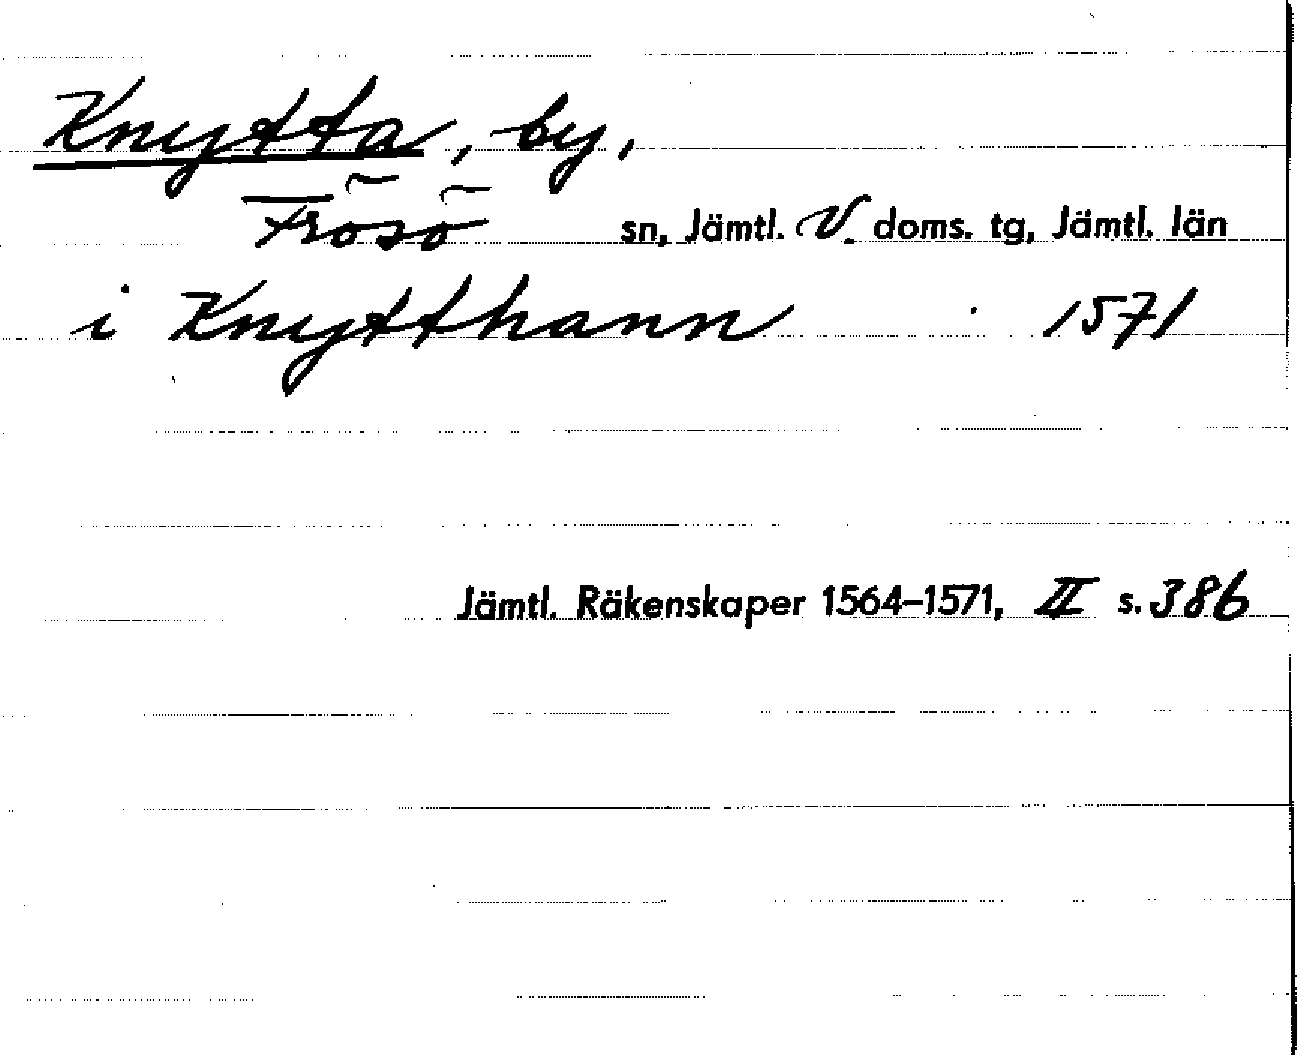 Knytta, by,
Frösö sn, Jämtl. V. doms. tg, Jämtl. län
i Knytthann 1571
Jämtl. Räkenskaper 1564-1571, II s. 386